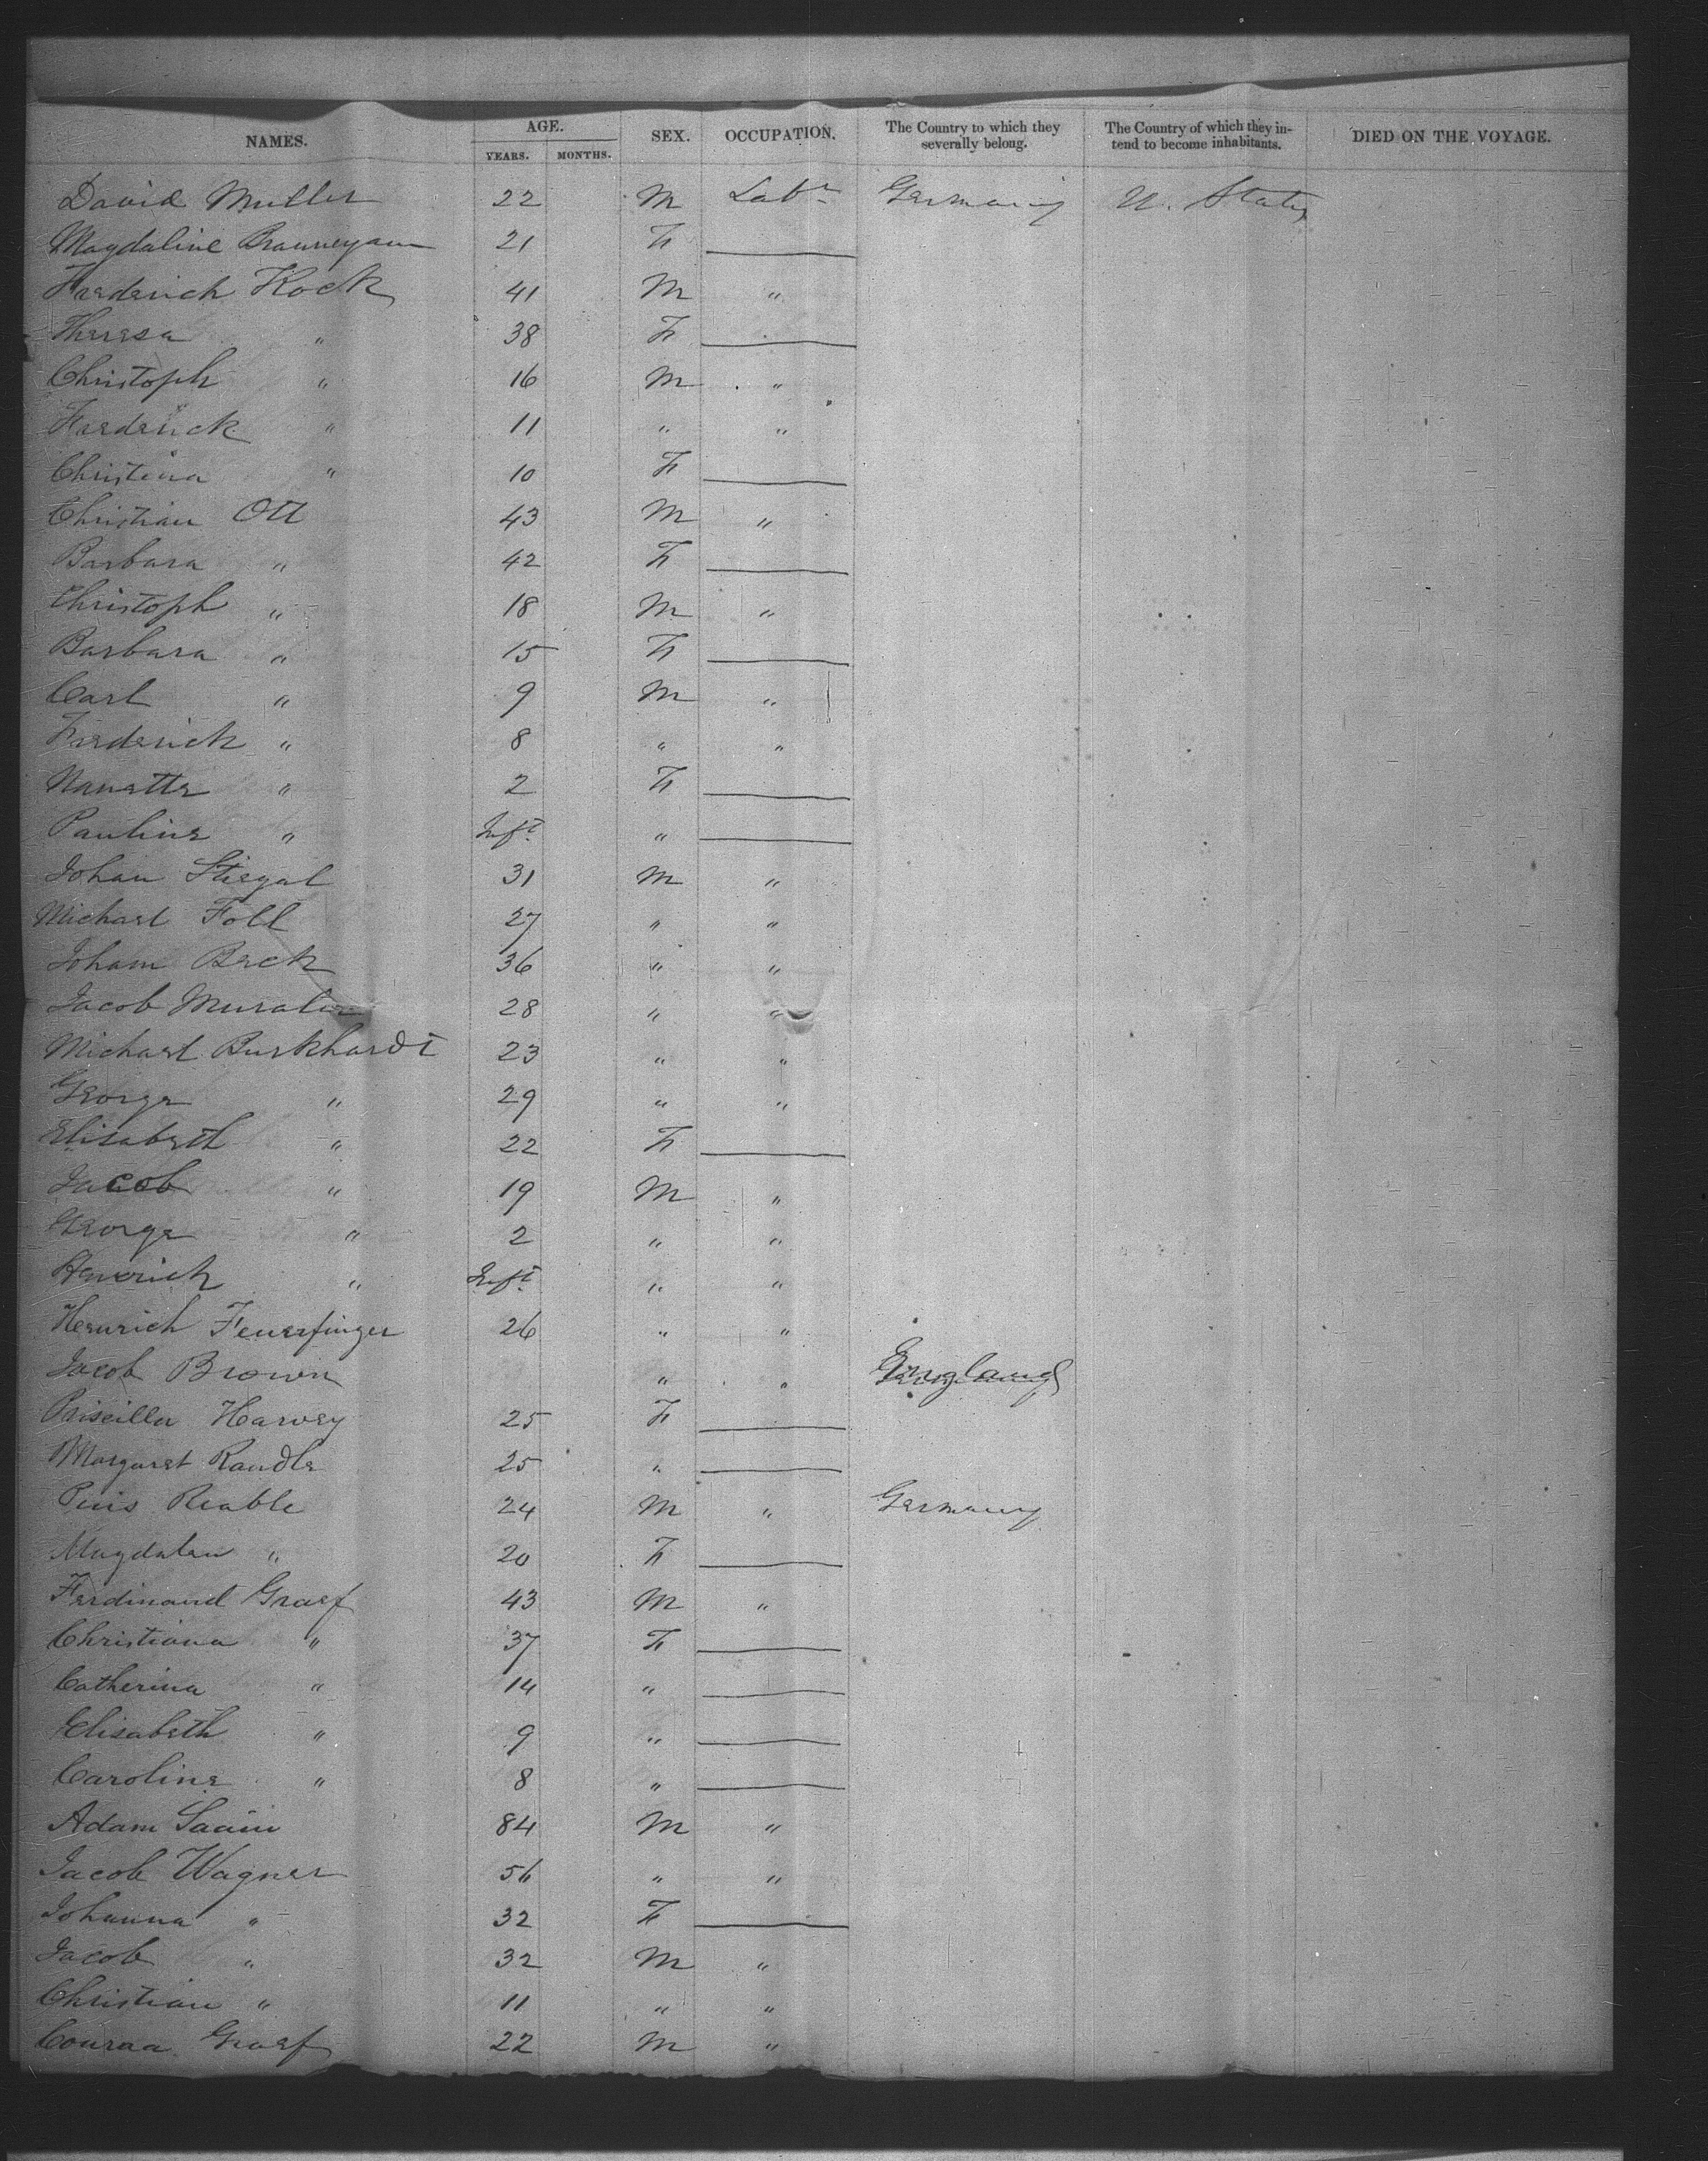 NAMES. AGE. YEARS. MONTHS. SEX. OCCUPATION. The Country to which they severally belong. The Country of which they intend to become inhabitants. DIED ON THE VOYAGE.
David Muller 22 M Labr Germany U. States
Magdaline 21 F
Frederick Kock 41 M "
Theresa " 38 F
Christoph " 16 M "
Frederick " 11 " "
Christina " 10 F
Christian Ott 43 M "
Barbara " 42 F
Christoph " 18 M "
Barbara " 15 F
Carl " 9 M "
Frederick " 8 " "
Nanette " 2 F
Pauline " Inft "
Johan Stiegal 31 M "
Michael Foll 27 " "
Joham Beck 36 " "
Jacob 28 " "
Michael Burkhardt 23 " "
George " 29 " "
Elisabeth " 22 F
Jacob " 19 M "
George " 2 " "
Henrich " Inft " "
Henrich Feuerfinger 26 " "
Jacob Brown " " England
Priscilla Harvey 25 F
Margaret Randle 25 "
Pius Reable 24 M " Germany
Magdalen " 20 F
Ferdinand Graef 43 M "
Christiana " 37 F
Catherina " 14 "
Elisabeth " 9 "
Caroline " 8 "
Adam 84 M "
Jacob Wagner 56 " "
Johanna " 32 F
Jacob " 32 M "
Christian " 11 " "
Conrad Graef 22 M "